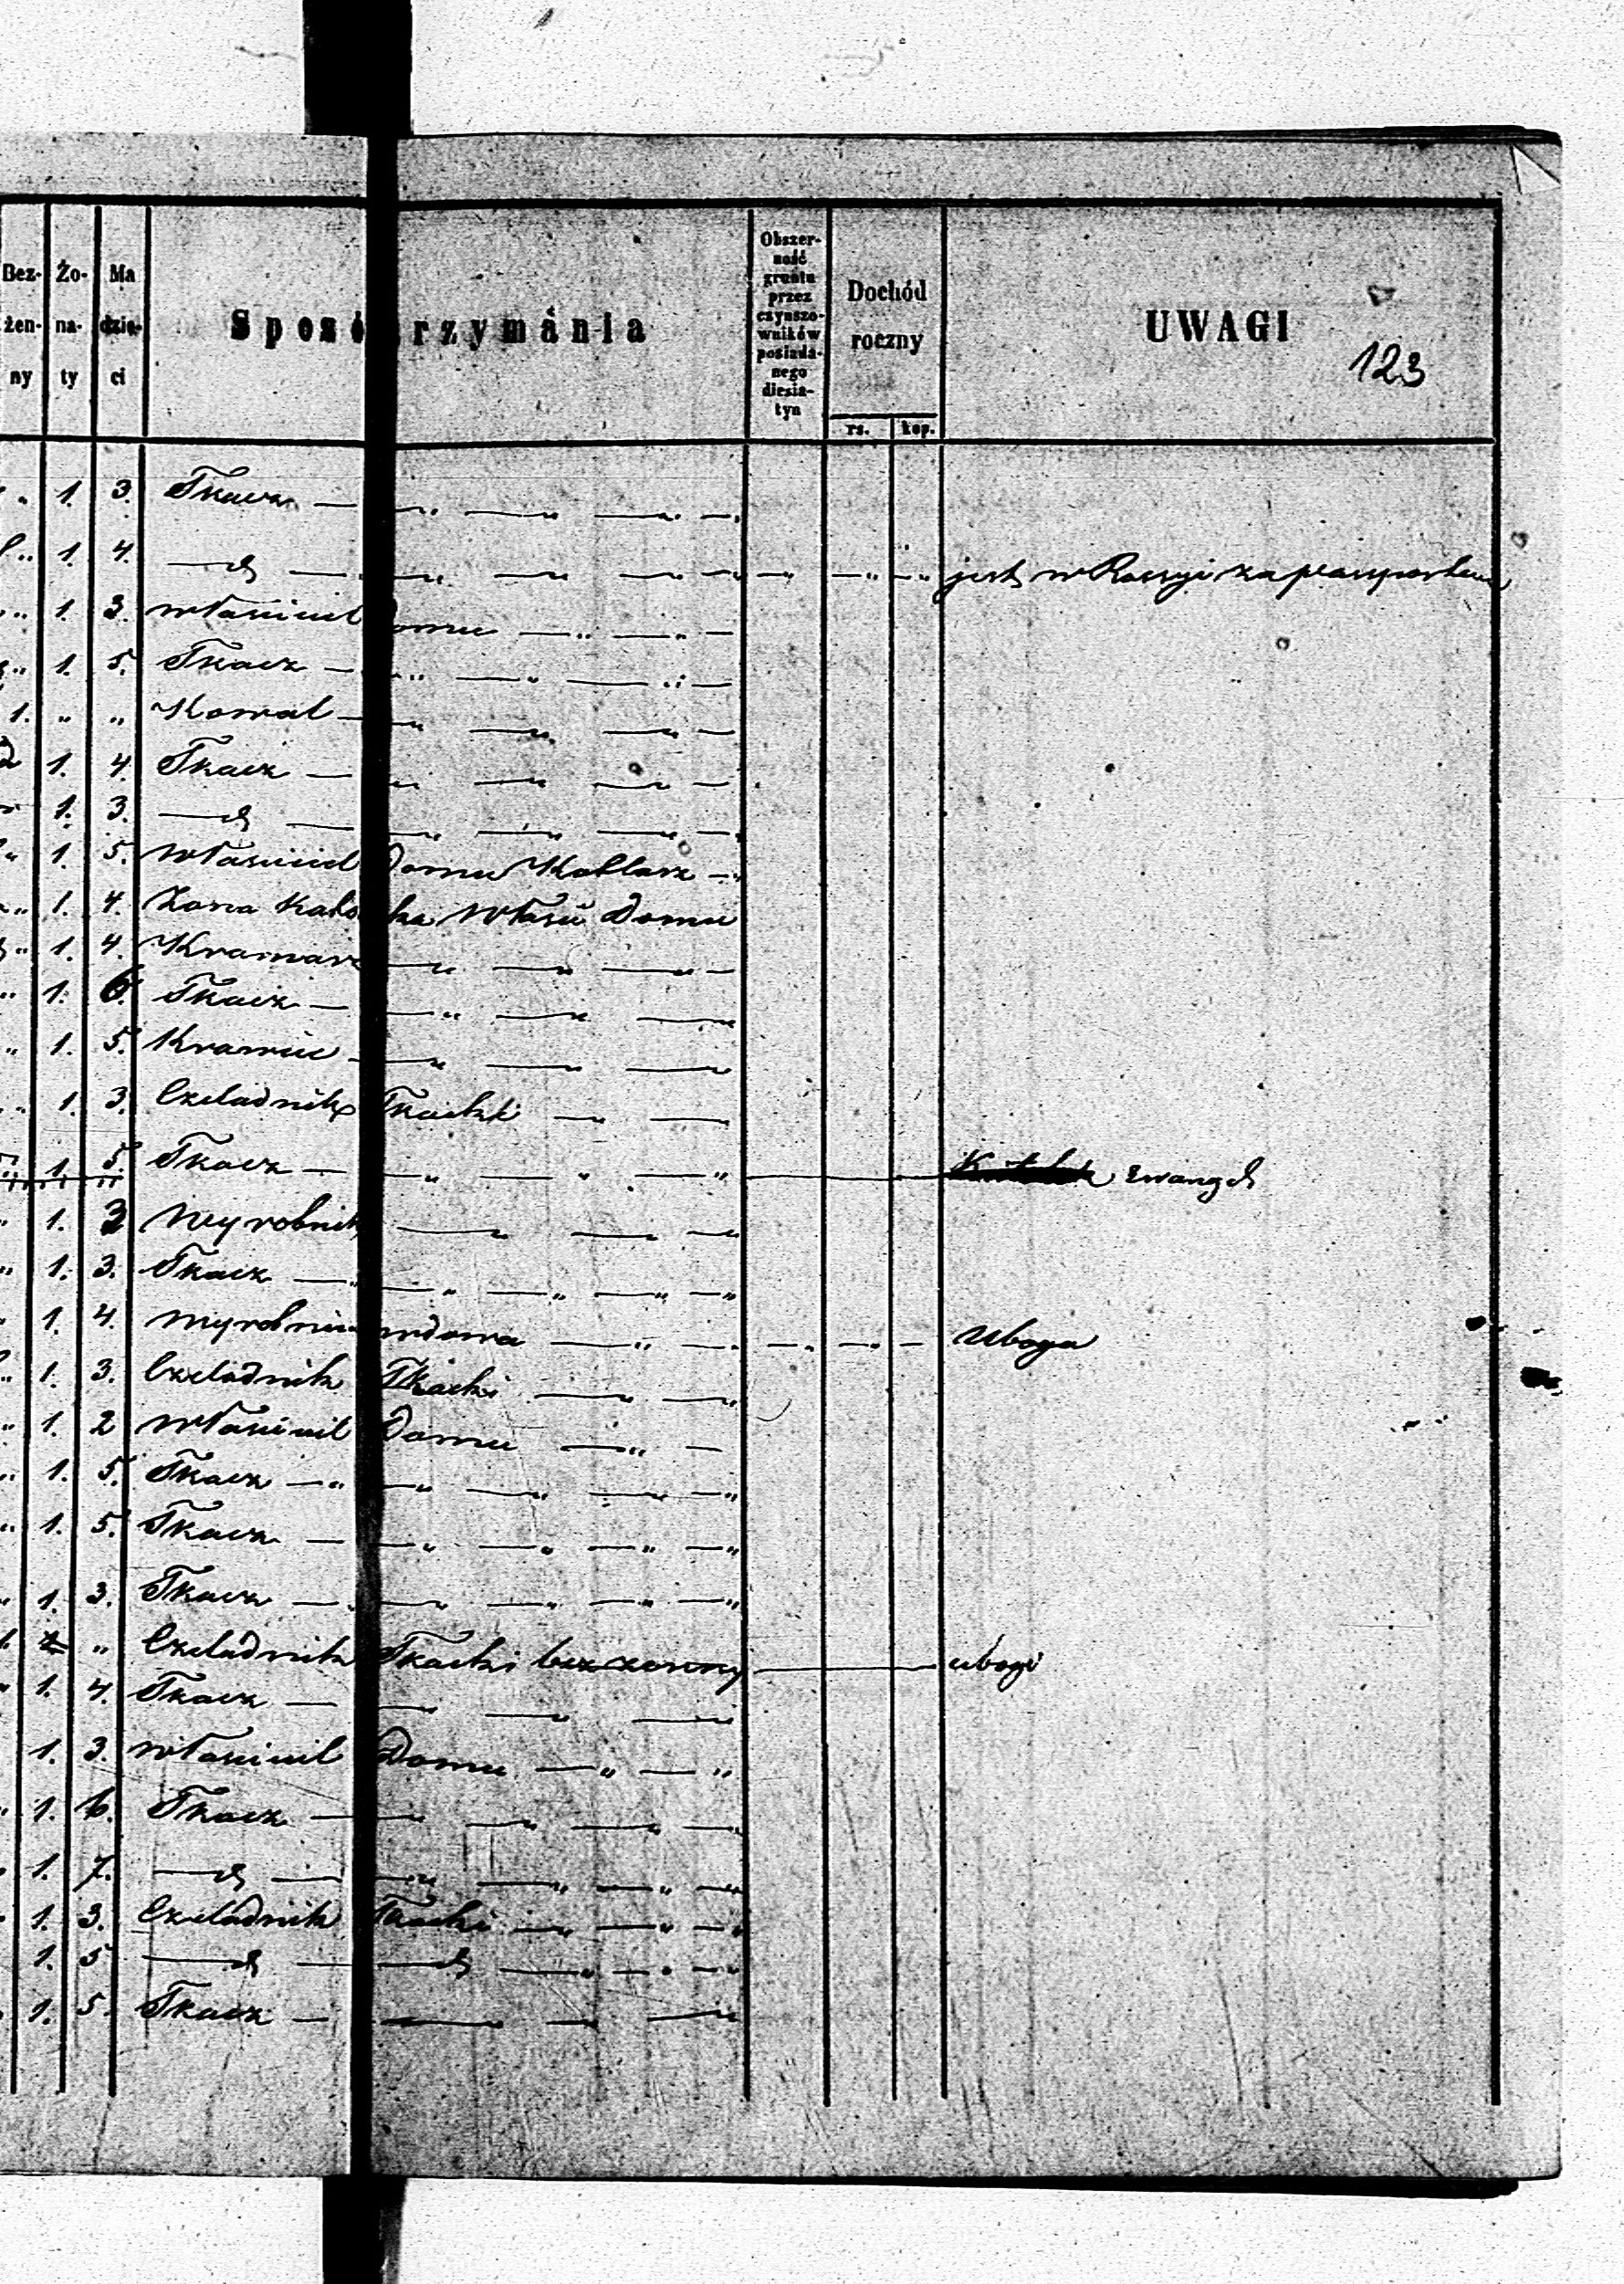 Bez- żen- ny Żo- na- ty Ma dzie- ci Sposó rzymánia Obszer- ność gruntu przez czynszo- wników posiada- nego diesia- tyn Dochód roczny rs. kop. UWAGI
123
1. 3. Tkacz
1. 4. jest w Rossyi za paszportem
1. 3. właściciel omu
1. 5. Tkacz
1. " " Kowal
1. 4. Tkacz
1. 3.
1. 5. właściciel Domu Kotlarz
1. 4. Żona ka Właści Domu
1. 4. Kramarz
1. 6 Tkacz
1. 5. Krawiec
1. 3. Czeladnik Tkacki
1. 5. Tkacz Ewangel
1. 3 Wyrobnik
1. 3. Tkacz
1. 4. Wyrobnica wdowa Uboga
1. 3. Czeladnik Tkacki
1. 2 właściciel Domu
1. 5. Tkacz
1. 5. Tkacz
1. 3. Tkacz
" Czeladnik Tkacki bezżenny ubogi
1. 4. Tkacz
1. 3. właściciel Domu
1. 6. Tkacz
1. 7.
1. 3. Czeladnik Tkacki
1. 5
1. 5. Tkacz